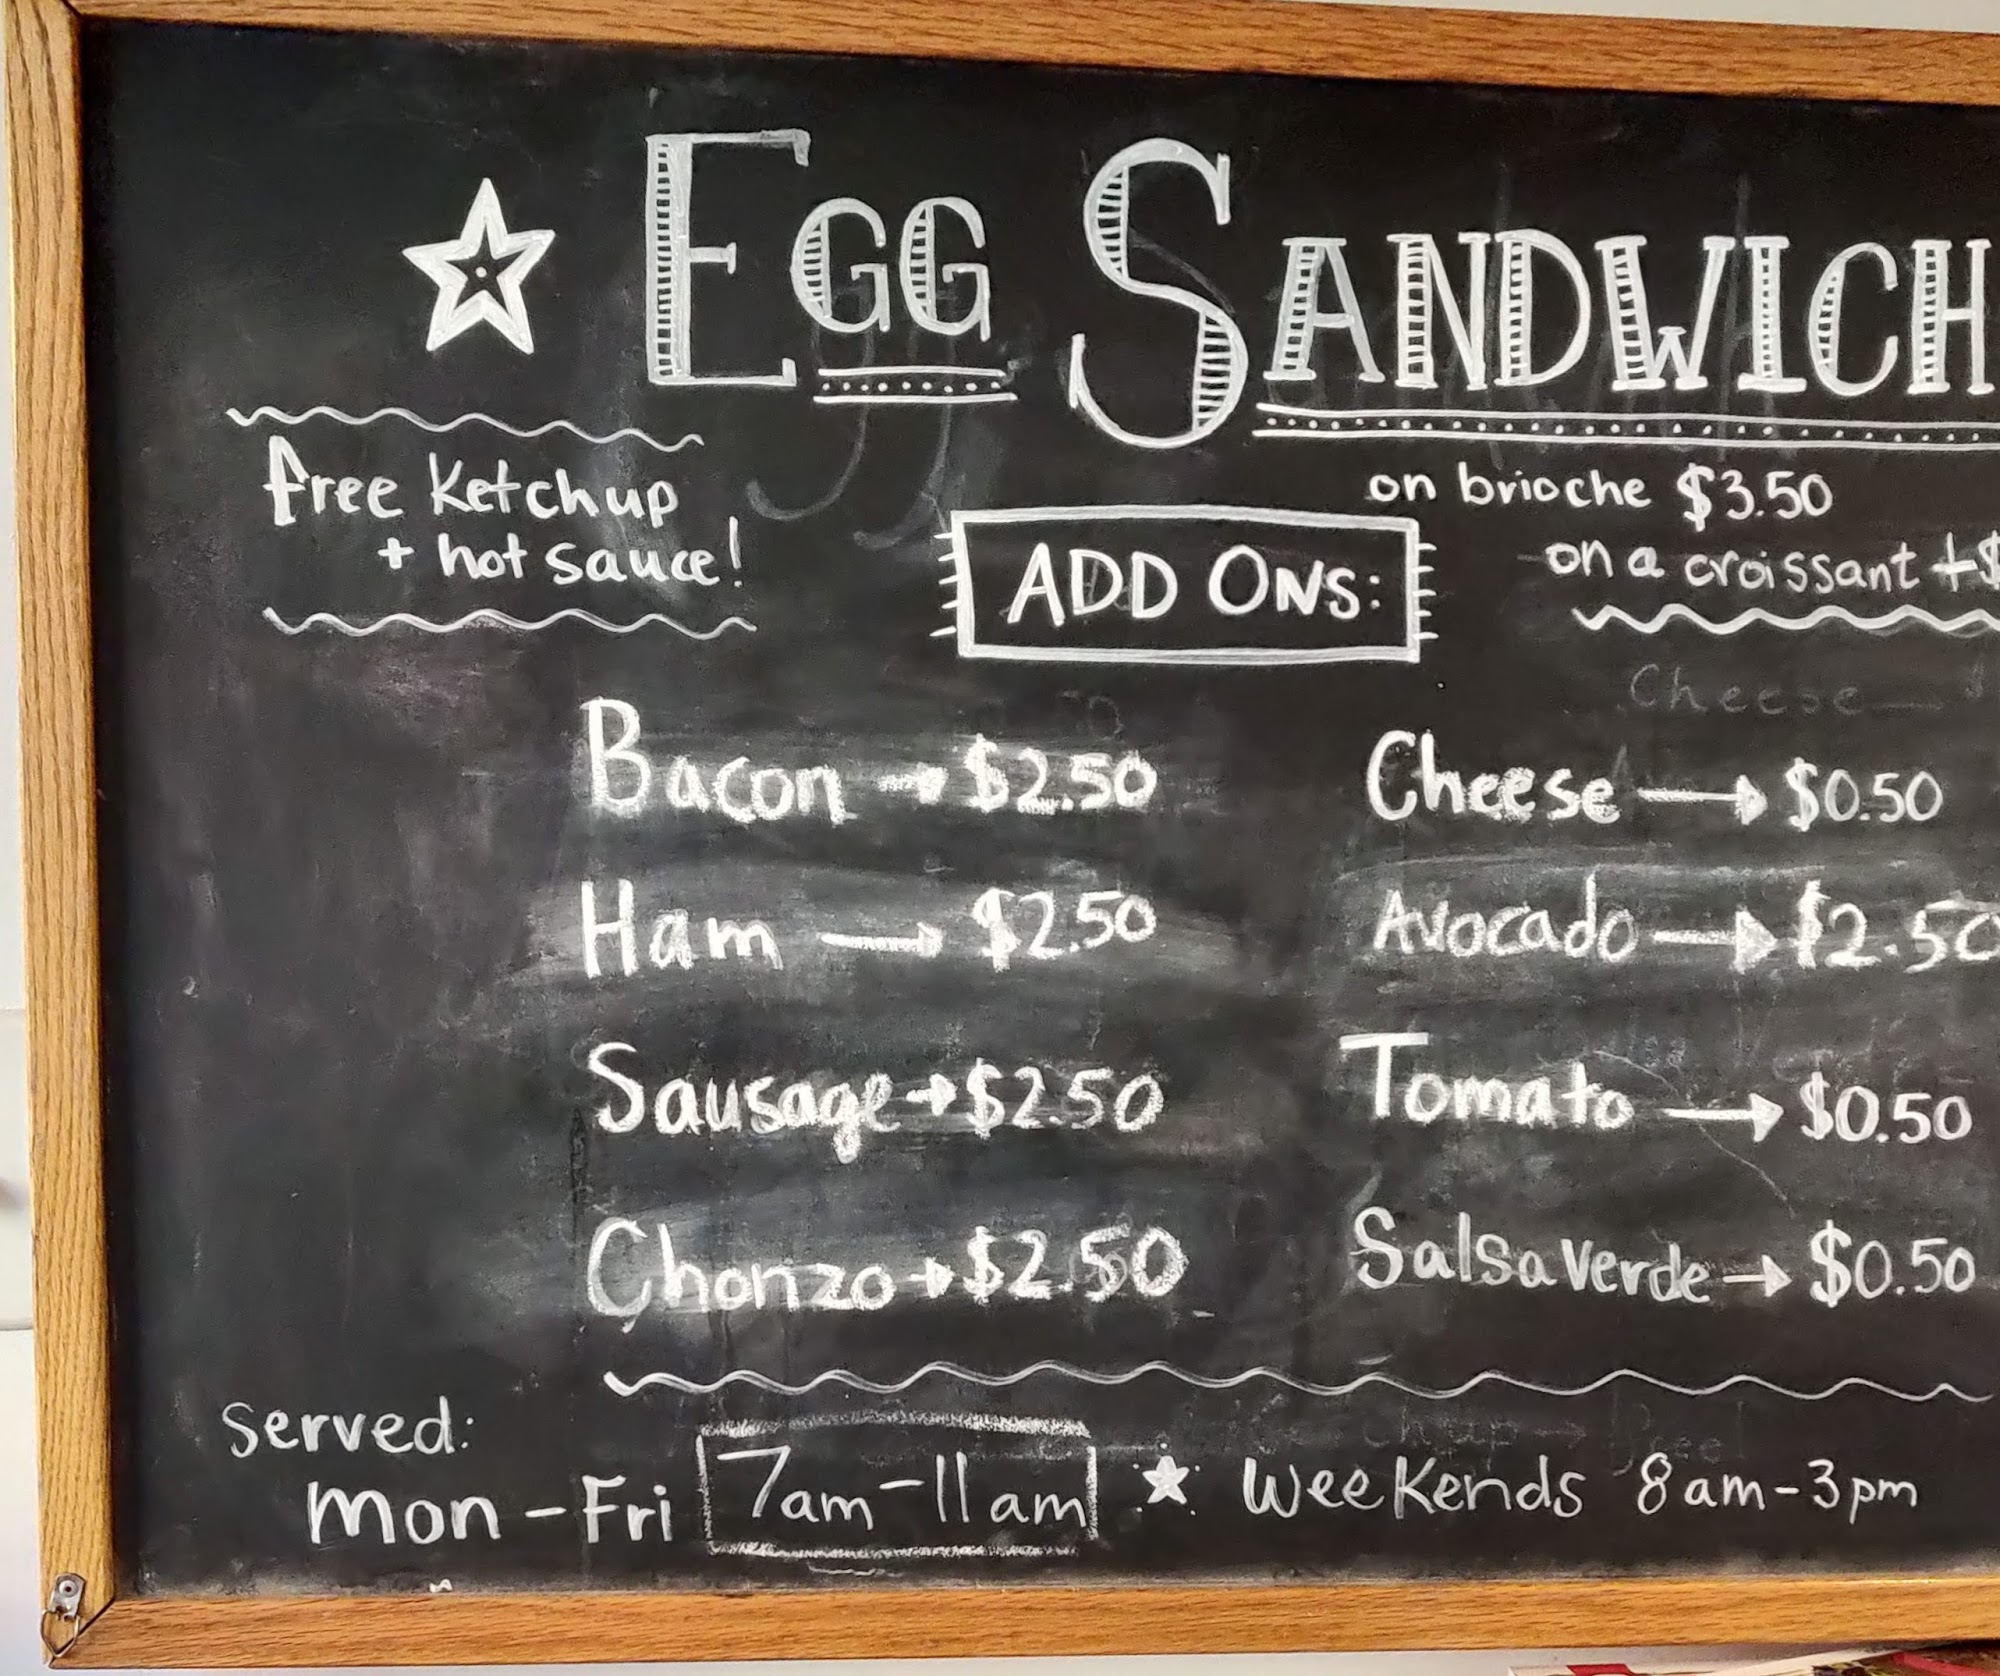 EGG SANDWICH
free Ketchup
+ hot sauce!
on brioche $3.50
on a croissant +$
ADD ONS:
Bacon → $2.50
Ham → $2.50
Sausage → $2.50
Chorizo → $2.50
Cheese
Cheese → $0.50
Avocado → $2.50
Tomato → $0.50
Salsa Verde → $0.50
served:
Mon - Fri 7am - 11am ★ Weekends 8am - 3pm